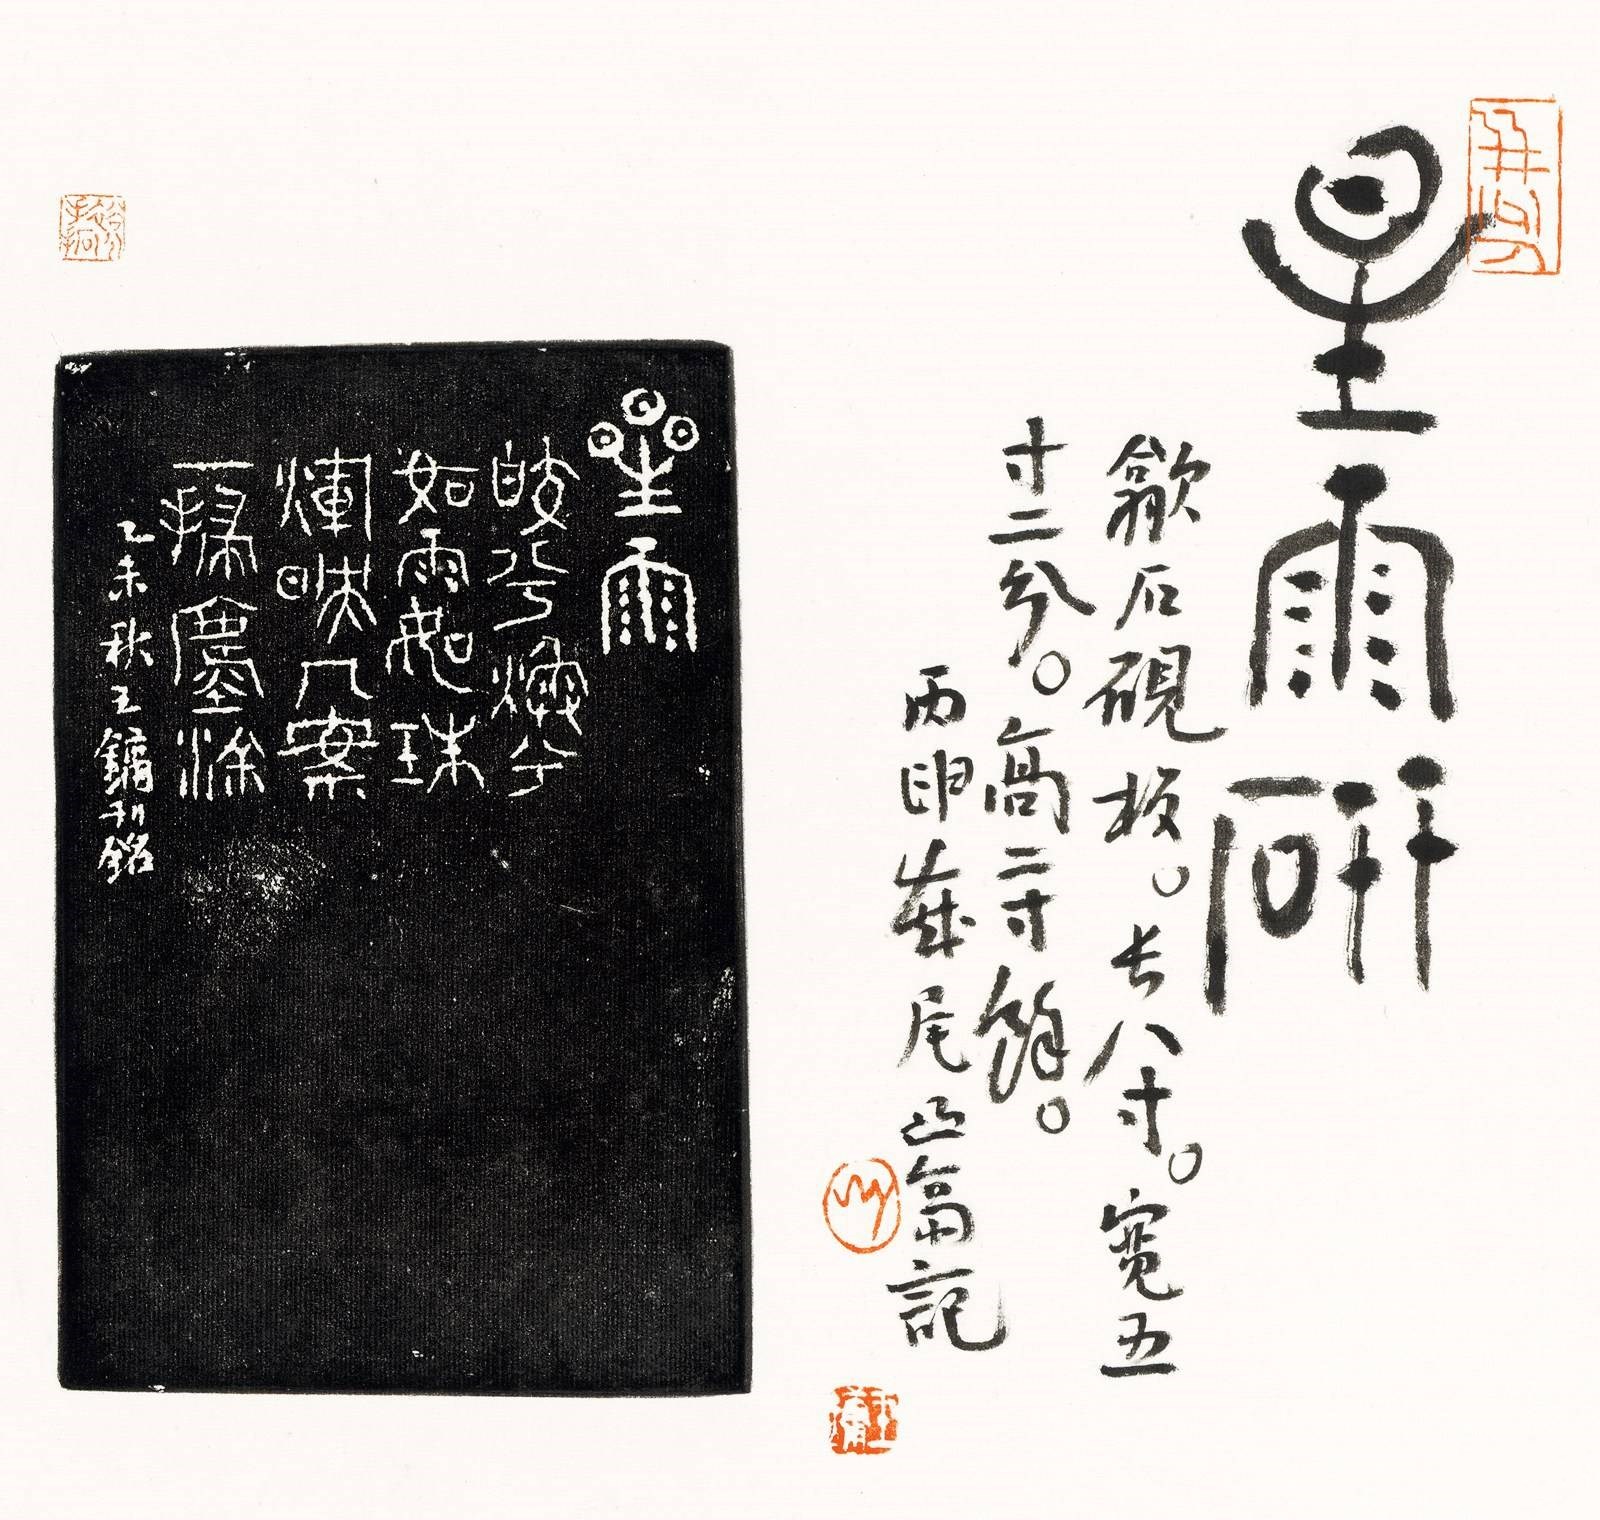 星雨研
歙石硯板。長八寸。寬五
寸二分。高二寸餘。
丙申歲尾凸斋記
星雨
皎兮煥兮
如雨珠
煇映几案
一掃塵涂
乙未秋王鏞刊銘